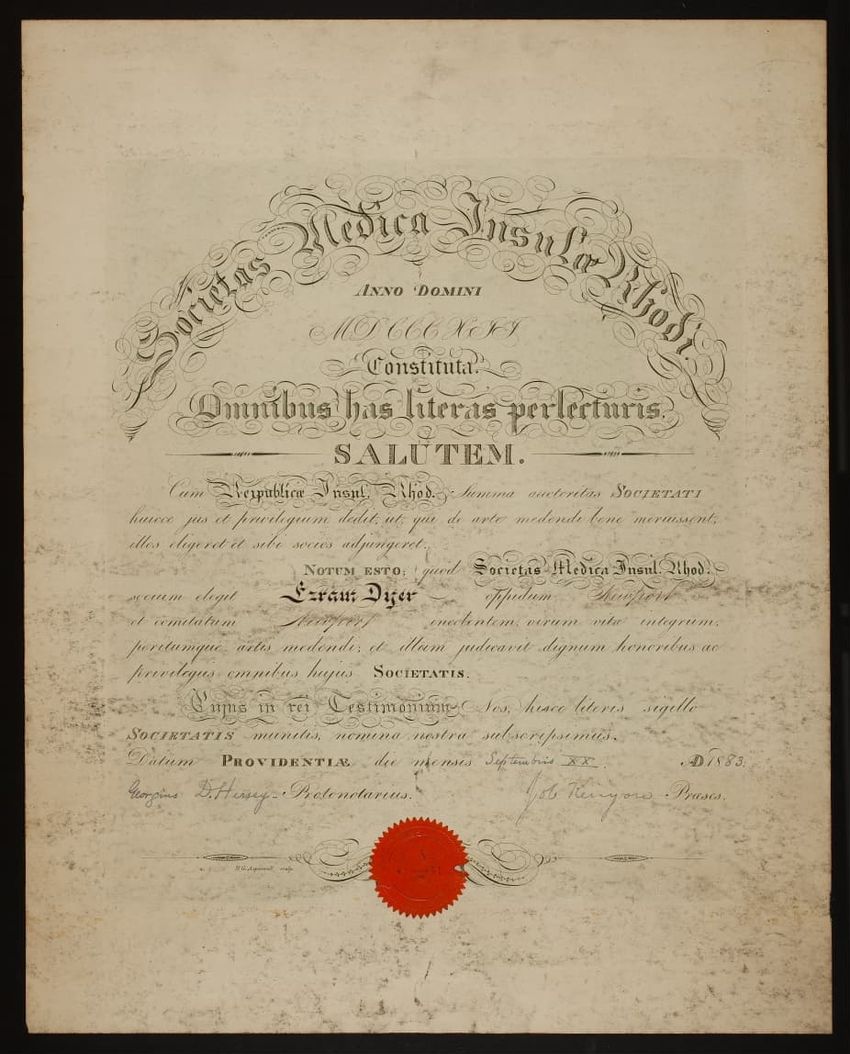 Societas Medica Insulæ Rhodi.
ANNO DOMINI
MDCCCXII
Constituta.
Omnibus has literas perlecturis.
SALUTEM.
Cum Reipublicæ Insul. Rhod. Summa auctoritas SOCIETATI
huicce jus et privilegium dedit, ut, qui de arte medendi bene meruissent,
illos eligeret et sibi socios adjungeret.
NOTUM ESTO; quod Societas Medica Insul. Rhod.
socium elegit Ezram Dyer oppidum Newport
et comitatum Newport incolentem, virum vitæ integrum,
peritumque artis medendi; et illum judicavit dignum honoribus ac
privilegiis omnibus hujus SOCIETATIS.
Cujus in rei Testimonium Nos, hisce literis sigillo
SOCIETATIS munitis, nomina nostra subscripsimus.
Datum PROVIDENTIÆ die mensis Septembris XX. AD 1883.
Georgius D. Hersey - Protonotarius. Job Kenyon Præses.